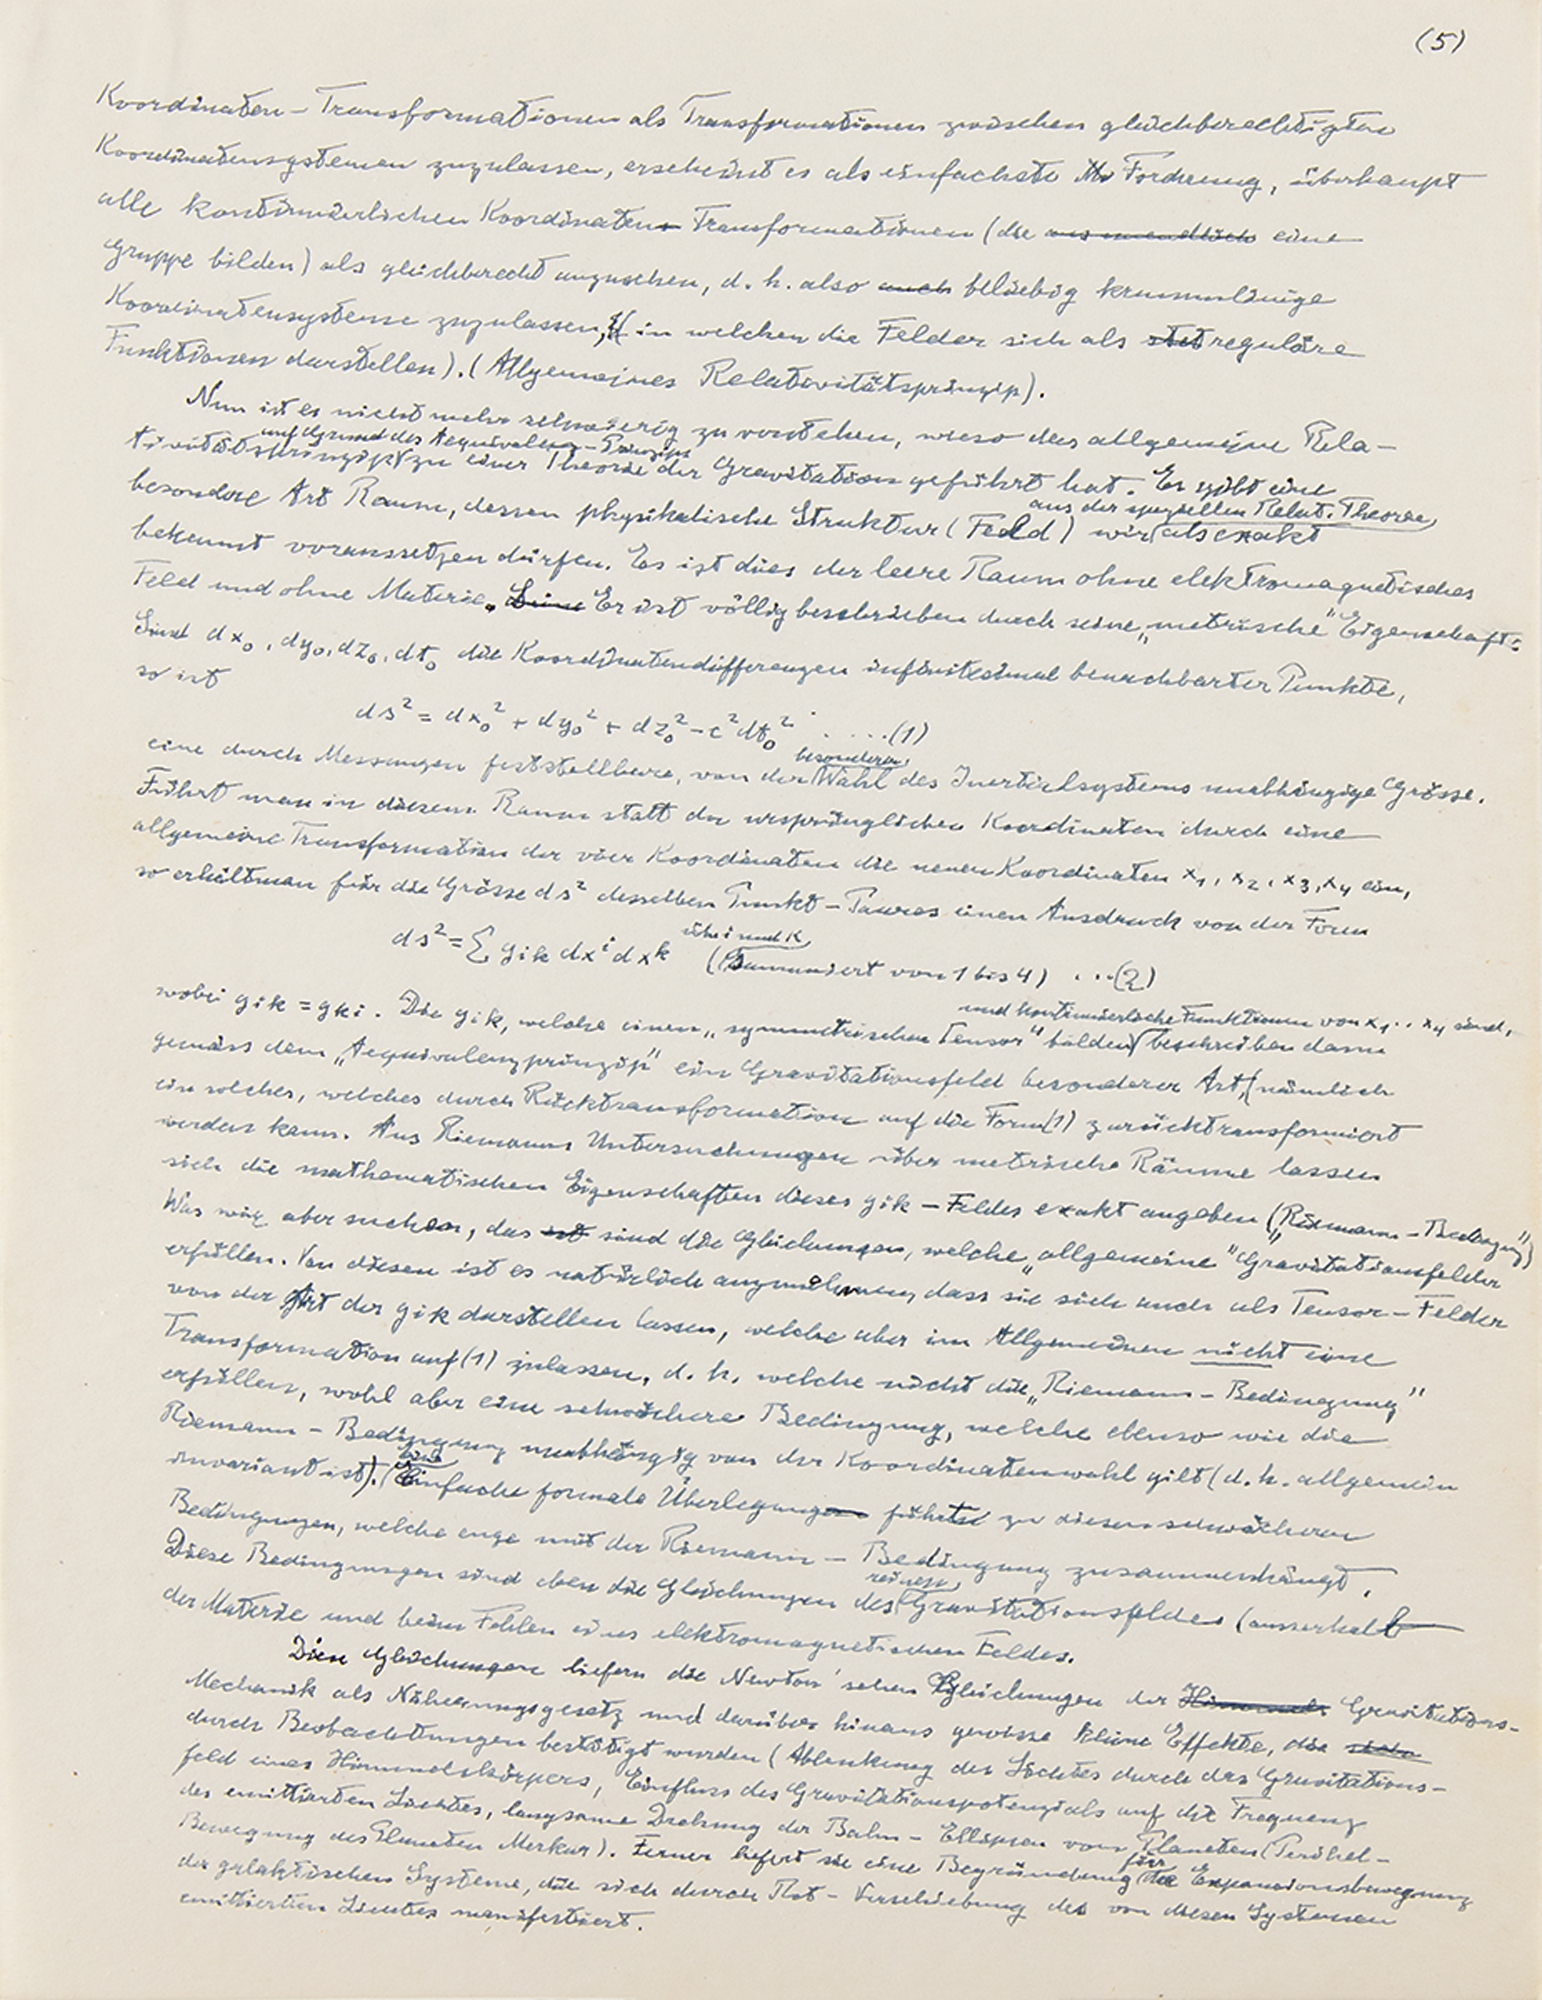 (5)
Koordinaten-Transformationen als Transformationen zwischen gleichberechtigten
Koordinatensystemen zuzulassen, erscheint es als einfachste Forderung, überhaupt
alle kontinuierlichen Koordinaten Transformationen (die eine
Gruppe bilden) als gleichberecht anzusehen, d. h. also auch beliebig krummlinige
Koordinatensysteme zuzulassen, (in welchen die Felder sich als reguläre
Funktionen darstellen). (Allgemeines Relativitätsprinzip).
Nun ist es nicht mehr schwierig zu verstehen, wieso das allgemeine Rela-
auf Grund des Aequivalenz-Prinzips
tivitätsprinzip zu einer Theorie der Gravitation geführt hat. Es gibt eine
aus der speziellen Relat. Theorie
besondere Art Raum, dessen physikalische Struktur (Feld) wir als exakt
bekannt voraussetzen dürfen. Es ist dies der leere Raum ohne elektromagnetisches
Feld und ohne Materie. Seine Er ist völlig beschrieben durch seine „metrische" Eigenschaft:
Sind dx₀, dy₀, dz₀, dt₀ die Koordinatendifferenzen infinitesimal benachbarter Punkte,
so ist
ds² = dx₀² + dy₀² + dz₀² - c²dt₀² . ....(1)
besonderen
eine durch Messungen feststellbare, von der Wahl des Inertialsystems unabhängige Grösse.
Führt man in diesem Raum statt der ursprünglichen Koordinaten durch eine
allgemeine Transformation der vier Koordinaten die neuen Koordinaten x₁, x₂, x₃, x₄ ein,
so erhält man für die Grösse ds² desselben Punkt-Paares einen Ausdruck von der Form
über i und k
ds² = Σ gik dxⁱ dxᵏ (Summiert von 1 bis 4) ...(2)
und kontinuierliche Funktionen von x₁..x₄ sind,
wobei gik = gki. Die gik, welche einen „symmetrischen Tensor" bilden beschreiben dann
gemäss dem „Aequivalenzprinzip" ein Gravitationsfeld besonderer Art, (nämlich
ein solches, welches durch Rücktransformation auf die Form (1) zurücktransformiert
werden kann. Aus Riemanns Untersuchungen über metrische Räume lassen
sich die mathematischen Eigenschaften dieses gik-Feldes exakt angeben („Riemann-Bedingung")
Was wir aber suchen, das ist sind die Gleichungen, welche „allgemeine" Gravitationsfelder
erfüllen. Von diesen ist es natürlich anzunehmen, dass sie sich auch als Tensor-Felder
von der Art der gik darstellen lassen, welche aber im Allgemeinen nicht eine
Transformation auf (1) zulassen, d. h. welche nicht die „Riemann-Bedingung"
erfüllen, wohl aber eine schwächere Bedingung, welche ebenso wie die
Riemann-Bedingung unabhängig von der Koordinatenwahl gilt (d. h. allgemein
Eine
invariant ist). Einfache formale Überlegung führt zu diesen schwächeren
Bedingungen, welche enge mit der Riemann-Bedingung zusammenhängt.
reinen
Diese Bedingungen sind eben die Gleichungen des Gravitationsfeldes (ausserhalb
der Materie und beim Fehlen eines elektromagnetischen Feldes.
Diese Gleichungen liefern die Newton'schen Gleichungen der Himmels Gravitations-
Mechanik als Näherungsgesetz und darüber hinaus gewisse kleine Effekte, die
durch Beobachtungen bestätigt wurden (Ablenkung des Lichtes durch das Gravitations-
feld eines Himmelskörpers, Einfluss des Gravitationspotenzials auf die Frequenz
des emittierten Lichtes, langsame Drehung der Bahn-Ellipsen von Planeten (Perihel-
Bewegung des Planeten Merkur). Ferner liefert sie eine Begründung für Expansionsbewegung
der galaktischen Systeme, die sich durch Rot-Verschiebung des von diesen Systemen
emittierten Lichtes manifestiert.